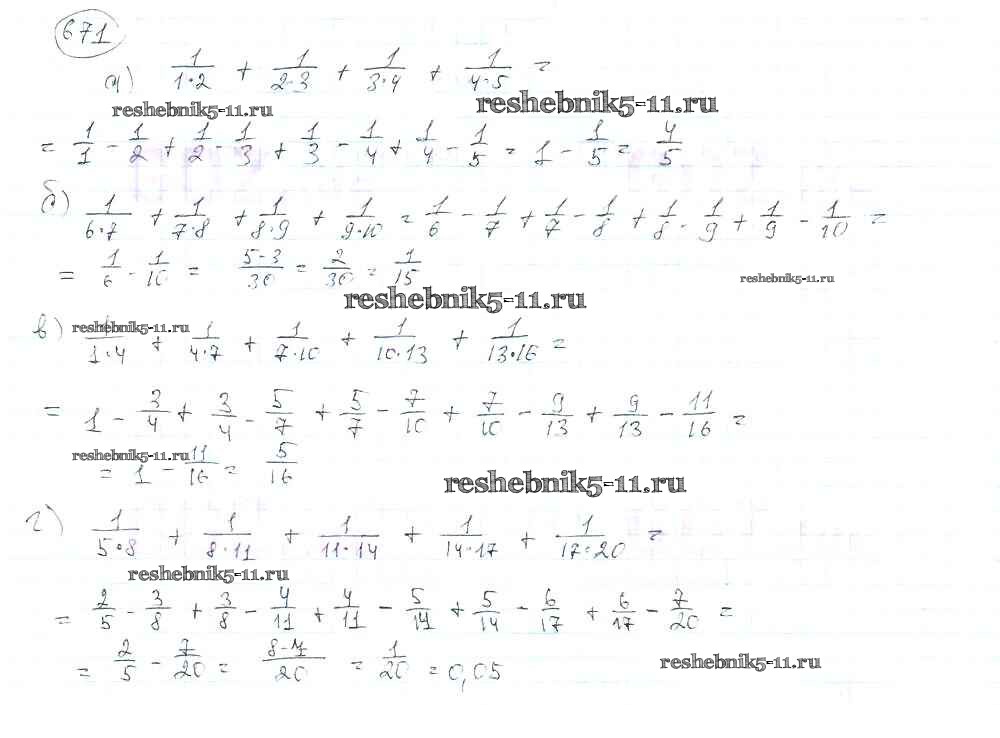 671
а) 1/(1·2) + 1/(2·3) + 1/(3·4) + 1/(4·5) =
reshebnik5-11.ru reshebnik5-11.ru
= 1/1 - 1/2 + 1/2 - 1/3 + 1/3 - 1/4 + 1/4 - 1/5 = 1 - 1/5 = 4/5
б) 1/(6·7) + 1/(7·8) + 1/(8·9) + 1/(9·10) = 1/6 - 1/7 + 1/7 - 1/8 + 1/8 - 1/9 + 1/9 - 1/10 =
= 1/6 - 1/10 = (5-3)/30 = 2/30 = 1/15
reshebnik5-11.ru
reshebnik5-11.ru
reshebnik5-11.ru
в) 1/(1·4) + 1/(4·7) + 1/(7·10) + 1/(10·13) + 1/(13·16) =
= 1 - 3/4 + 3/4 - 5/7 + 5/7 - 7/10 + 7/10 - 9/13 + 9/13 - 11/16 =
reshebnik5-11.ru
= 1 - 11/16 = 5/16
reshebnik5-11.ru
г) 1/(5·8) + 1/(8·11) + 1/(11·14) + 1/(14·17) + 1/(17·20) =
reshebnik5-11.ru
= 2/5 - 3/8 + 3/8 - 4/11 + 4/11 - 5/14 + 5/14 - 6/17 + 6/17 - 7/20 =
= 2/5 - 7/20 = (8-7)/20 = 1/20 = 0,05
reshebnik5-11.ru